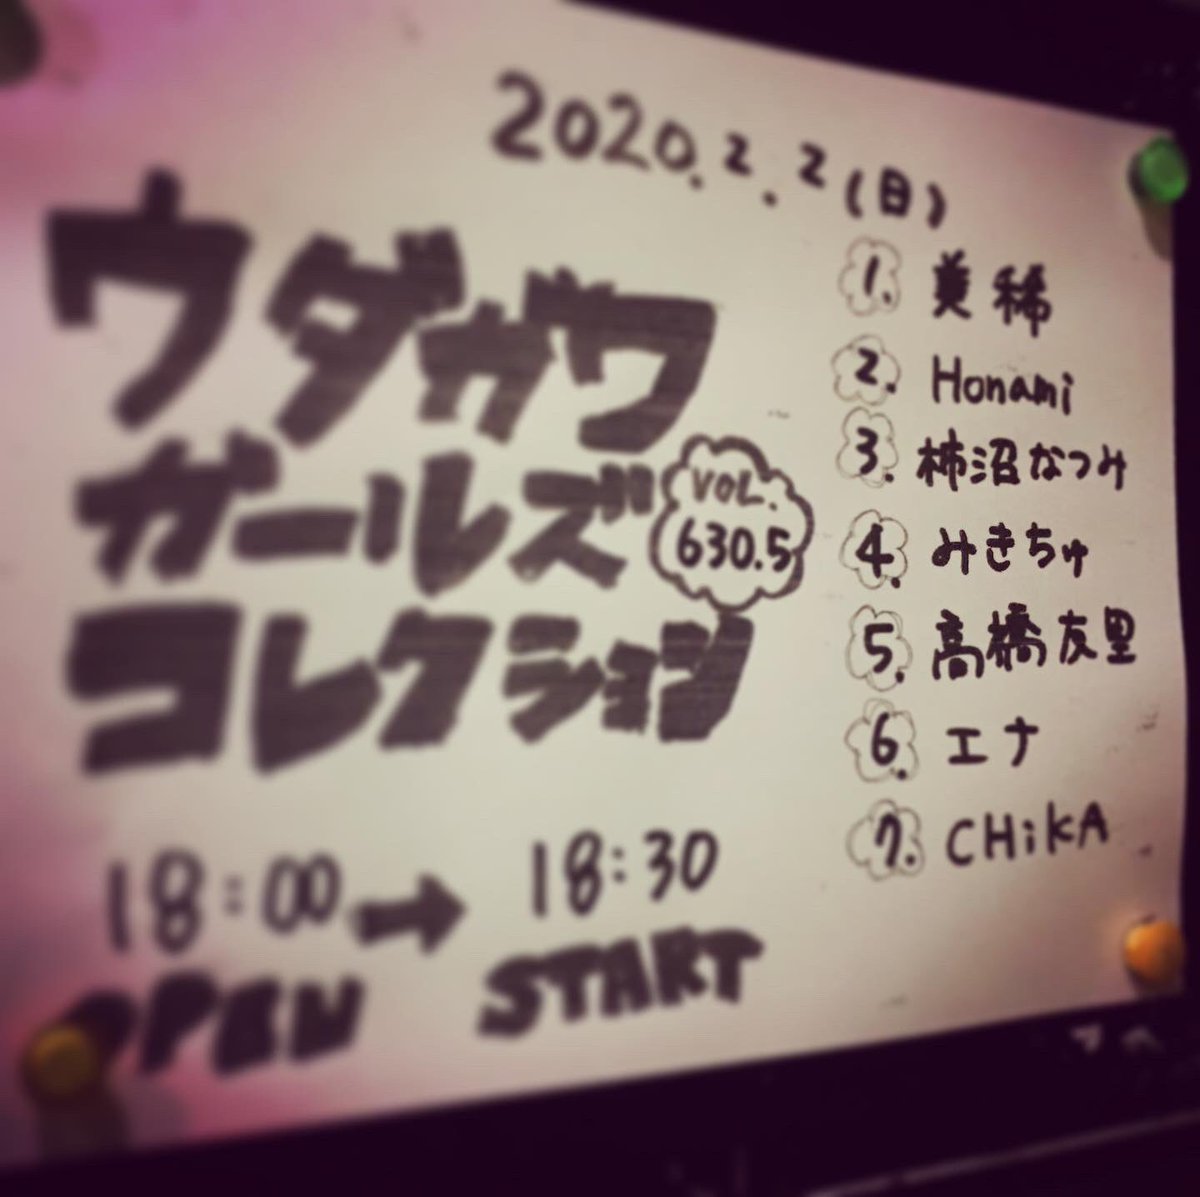 2020.2.2(日)
ウダガワ
ガールズ
コレクション
VOL.
630.5
18:00→18:30
OPEN START
1. 美稀
2. Honami
3. 柿沼なつみ
4. みきちゅ
5. 高橋友里
6. エナ
7. CHiKA